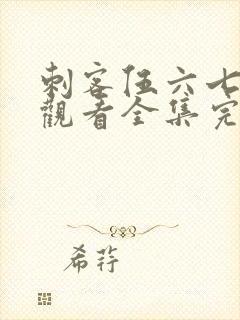 刺客伍六七
觀看全集完
希荇